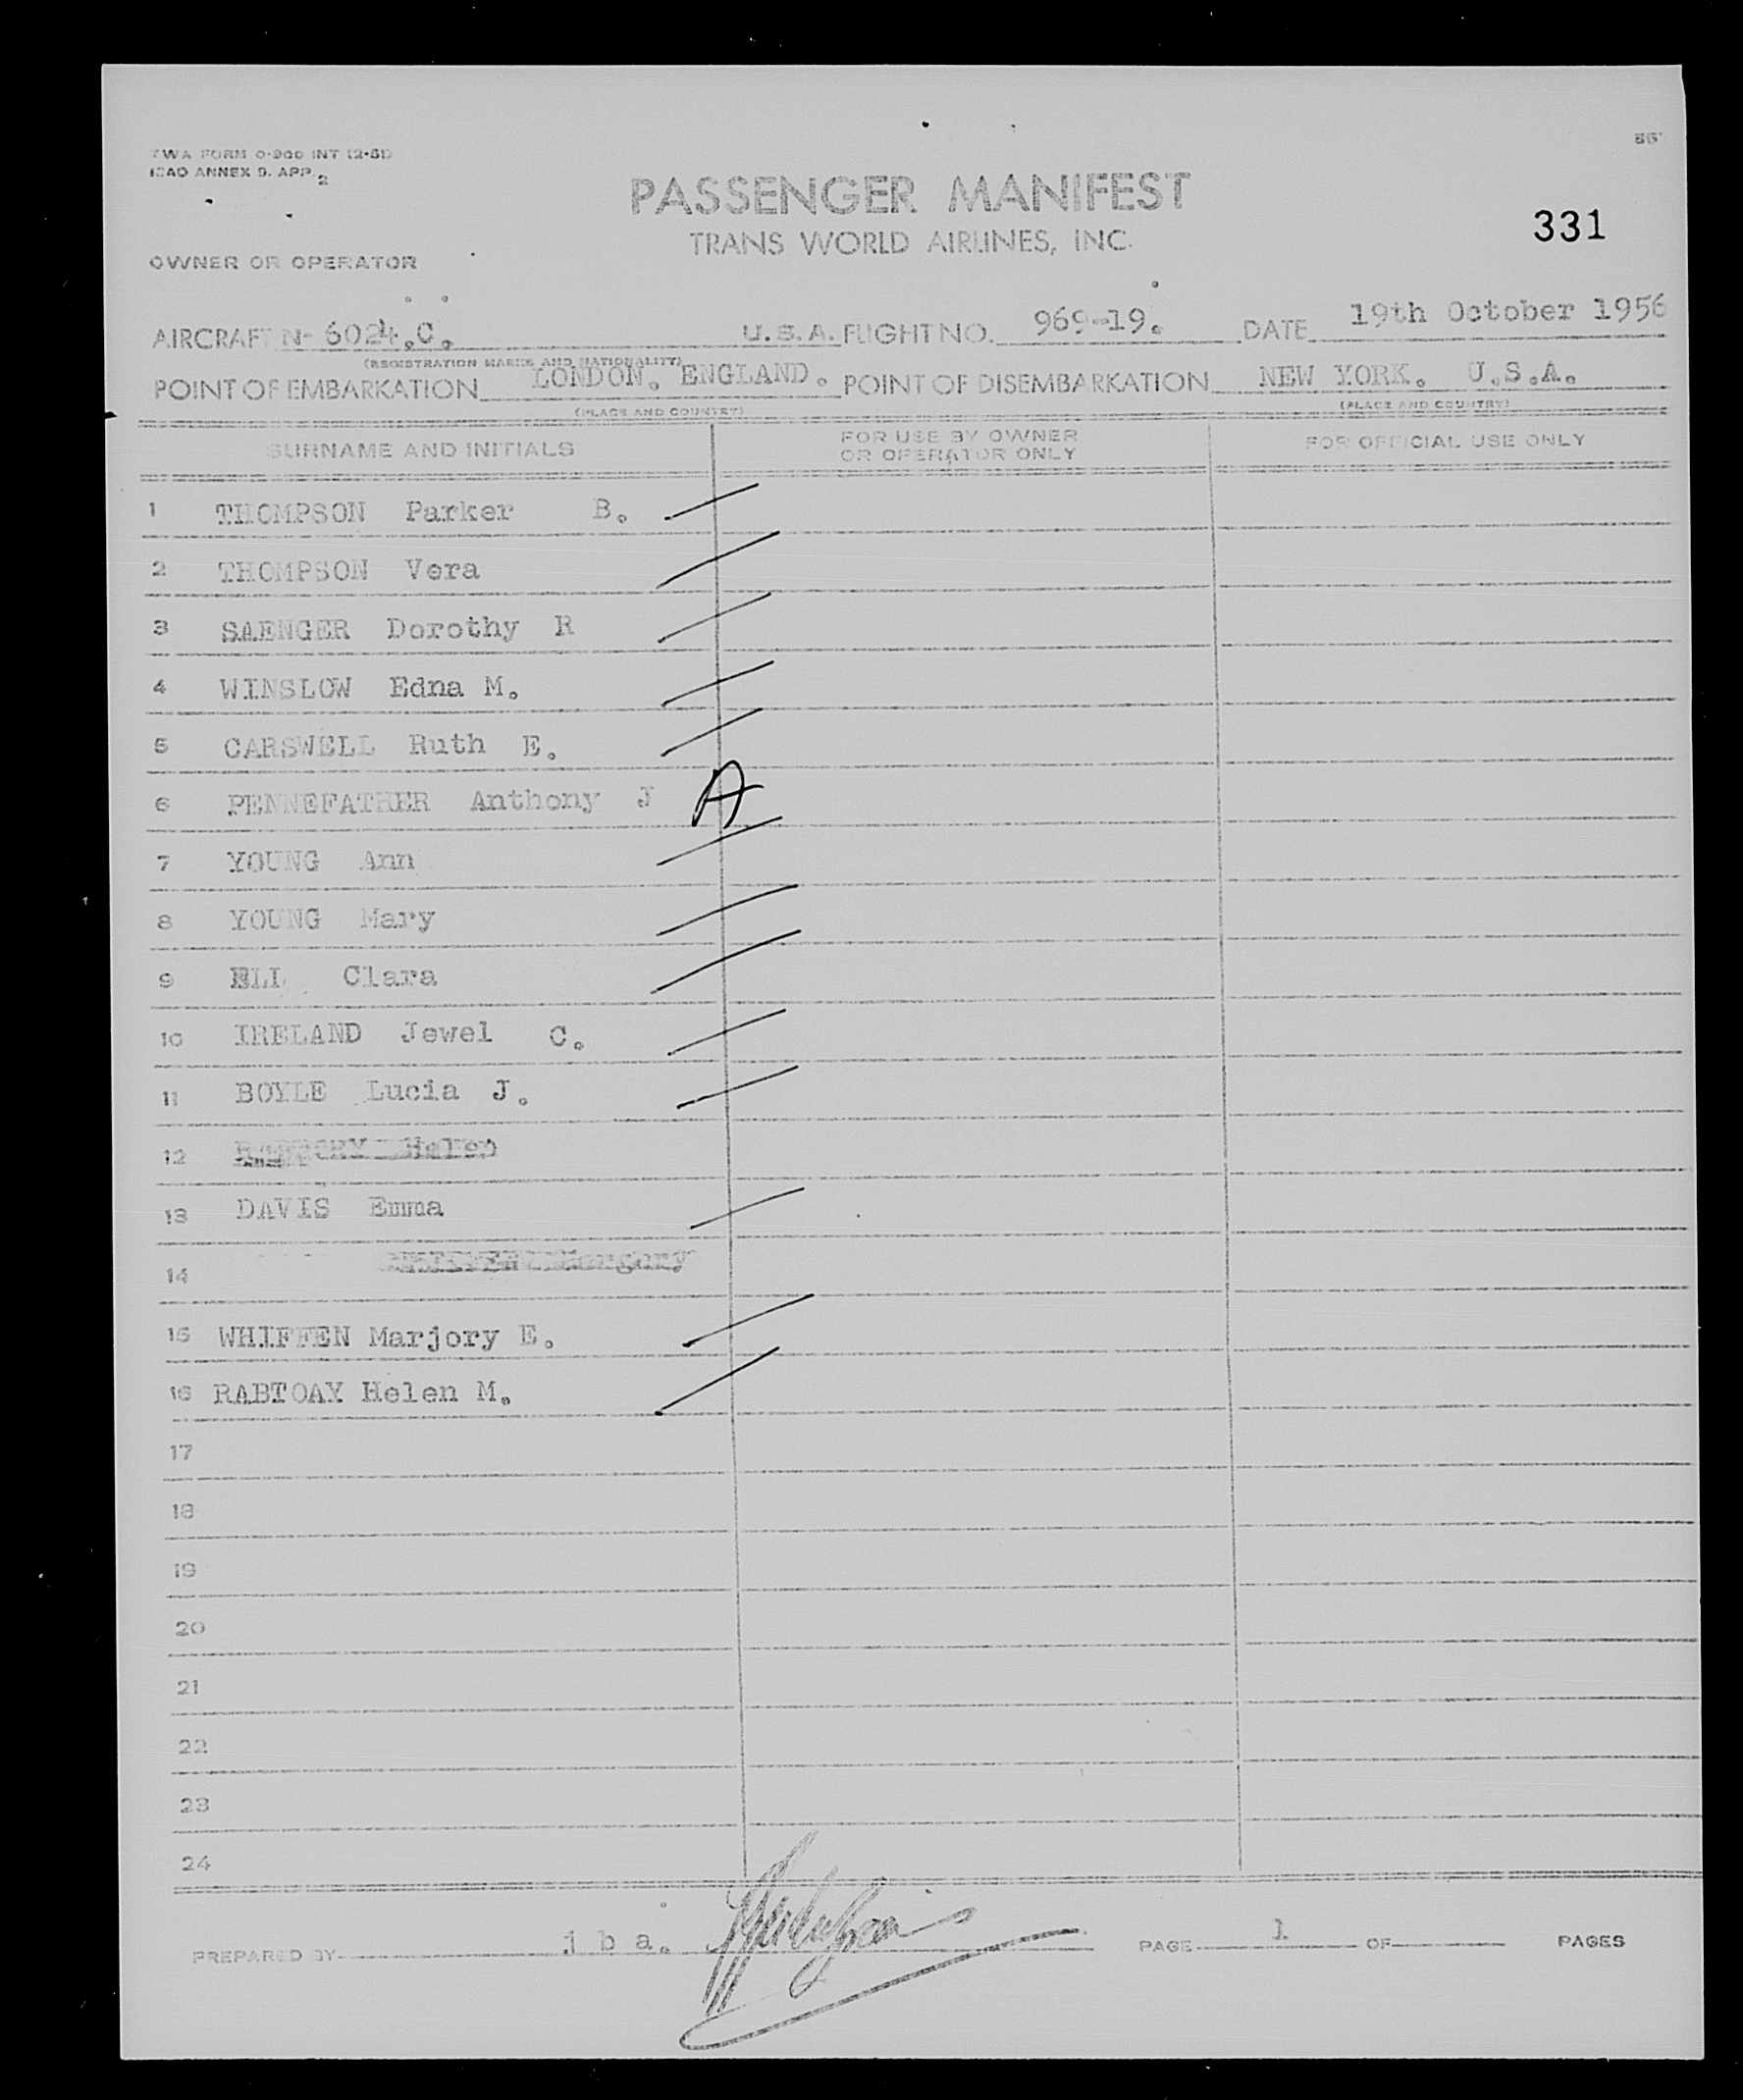 TWA FORM O-900 INT (2-51)
ICAO ANNEX 9. APP. 2
PASSENGER MANIFEST
331
TRANS WORLD AIRLINES, INC.
OWNER OR OPERATOR
AIRCRAFT N- 6024.C. U.S.A. FLIGHT NO. 969-19. DATE 19th October 1956
(REGISTRATION MARKS AND NATIONALITY)
POINT OF EMBARKATION LONDON. ENGLAND. POINT OF DISEMBARKATION NEW YORK. U.S.A.
(PLACE AND COUNTRY) (PLACE AND COUNTRY)
SURNAME AND INITIALS FOR USE BY OWNER OR OPERATOR ONLY FOR OFFICIAL USE ONLY
1 THOMPSON Parker B.
2 THOMPSON Vera
3 SAENGER Dorothy R
4 WINSLOW Edna M.
5 CARSWELL Ruth E.
6 PENNEFATHER Anthony J A
7 YOUNG Ann
8 YOUNG Mary
9 ELI Clara
10 IRELAND Jewel C.
11 BOYLE Lucia J.
12 Helen
13 DAVIS Emma
14
15 WHIFFEN Marjory E.
16 RABTOAY Helen M.
17
18
19
20
21
22
23
24
PREPARED BY j b a. PAGE 1 OF PAGES